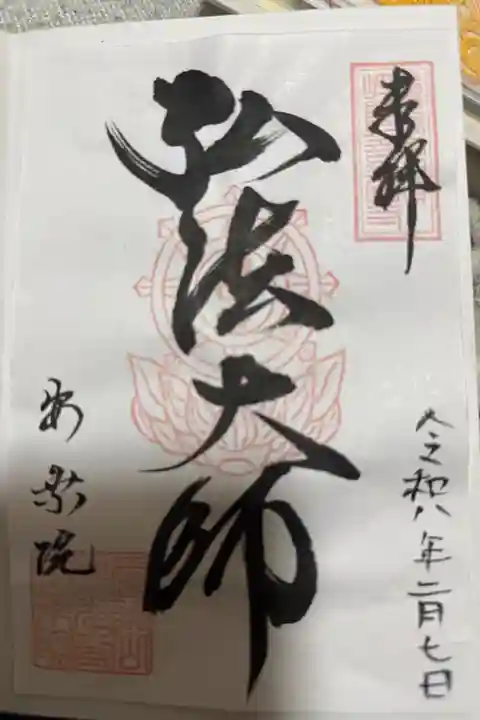 奉拝
令和八年二月七日
弘法大師
安楽院